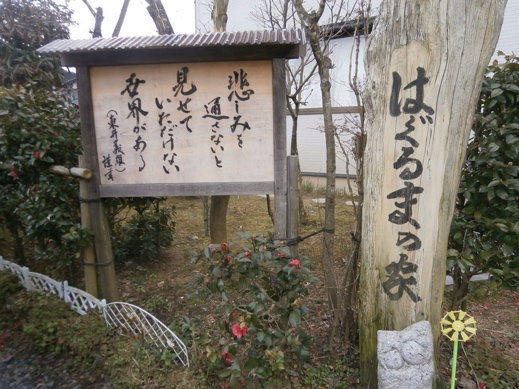 悲しみを
通さないと
見せて
いただけない
世界がある
はぐるまの家